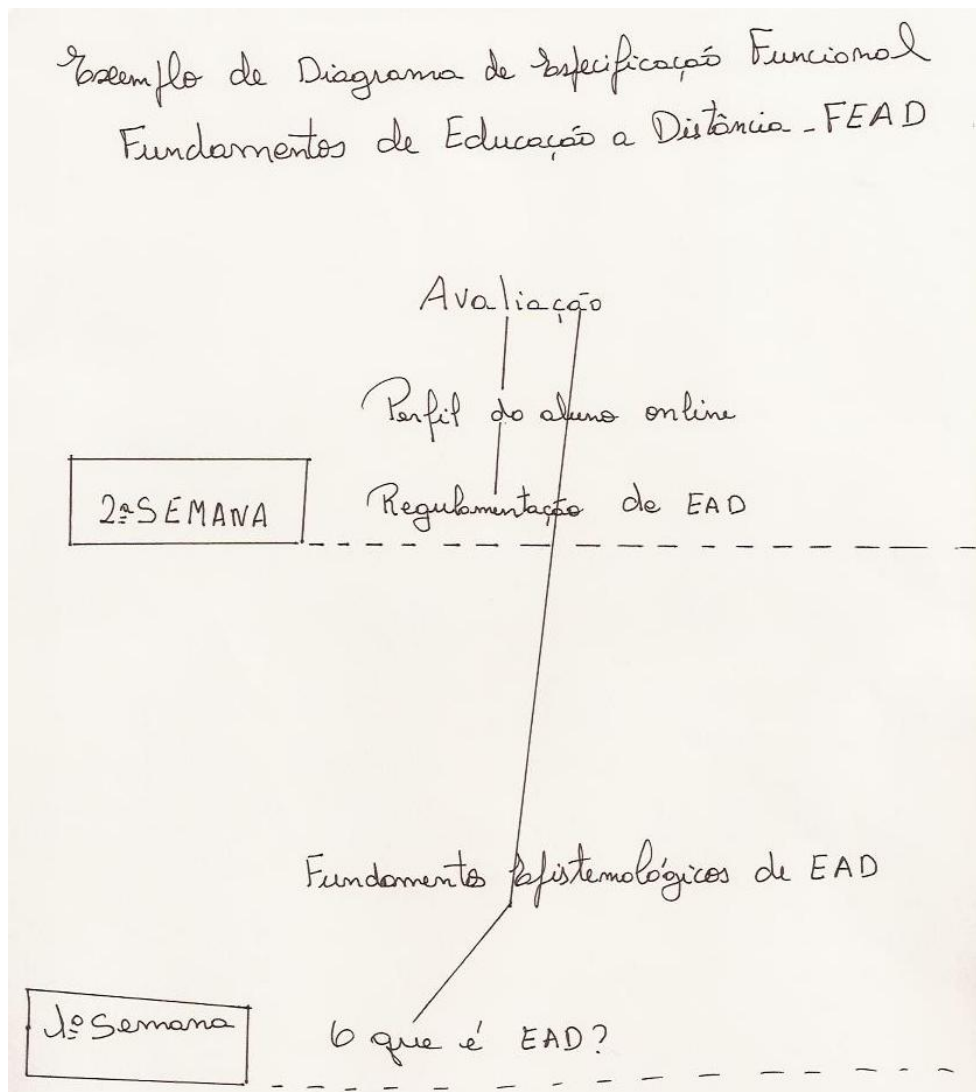 Exemplo de Diagrama de Especificação Funcional
Fundamentos de Educação a Distância - FEAD
Avaliação
Perfil do aluno online
2ª SEMANA
Regulamentação de EAD
Fundamentos Epistemológicos de EAD
1ª Semana
O que é EAD?